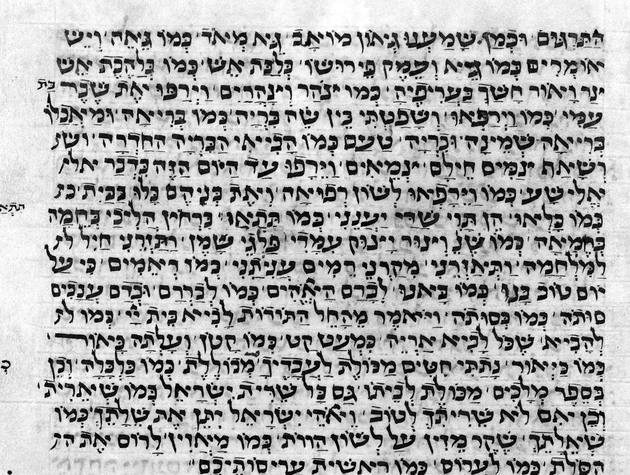 התרגום וכמן שמענו גאון מואב גא מאד כמו גאה ויש
אומרים כמו גיא ועמק פירושו כלבת אש כמו כלהבת אש
ויאור חשך בעריפיה כמו ינהר וינהרים וירפו את שבר בת
עמי כמו וירפאו ושפטתי בין שה בריה כמו בריאה ומאכלו
בריאה שמינה ובריה טעם כמו הבריה החדרה
חילם וירפו עד היום הזה כדבר אלי
אלישע כמו וירפאו לשון רפואה ואת בניהם כלו בבית כת
כמו כליאו הן תוי שדי יענני כמו תתאוו ברחוץ הליכי בחמה
בחמאה כמו וצור יצוק עמדי פלגי שמן ותזרני חיל לת
למלחמה ותאזרני מקרני רמים עניתני כמו ראמים כי על
יום טוב בנו כמו באנו לברם האלהים כמו לבררם ובדם ענבים
סותה כמו כסותה ויאמר מהחל התרומה לביא בית יי כמו לת
להביא שכל לביא אריה כמעט קט כמו קטן ועלתה כאור
כמו כיאור נתתי חטים מכולת לעבדיך מכוללת כמו כלכלה וכן
בספר מלכים מכולת לביתו גם כל שרית ישראל כמו שארית
וכן אם לא שריתך לטוב ואלהי ישראל יתן את שלתך כמו
שאלתך שקר מזין על לשון הוות כמו מאזין
כמו ראשית עריסותיכם